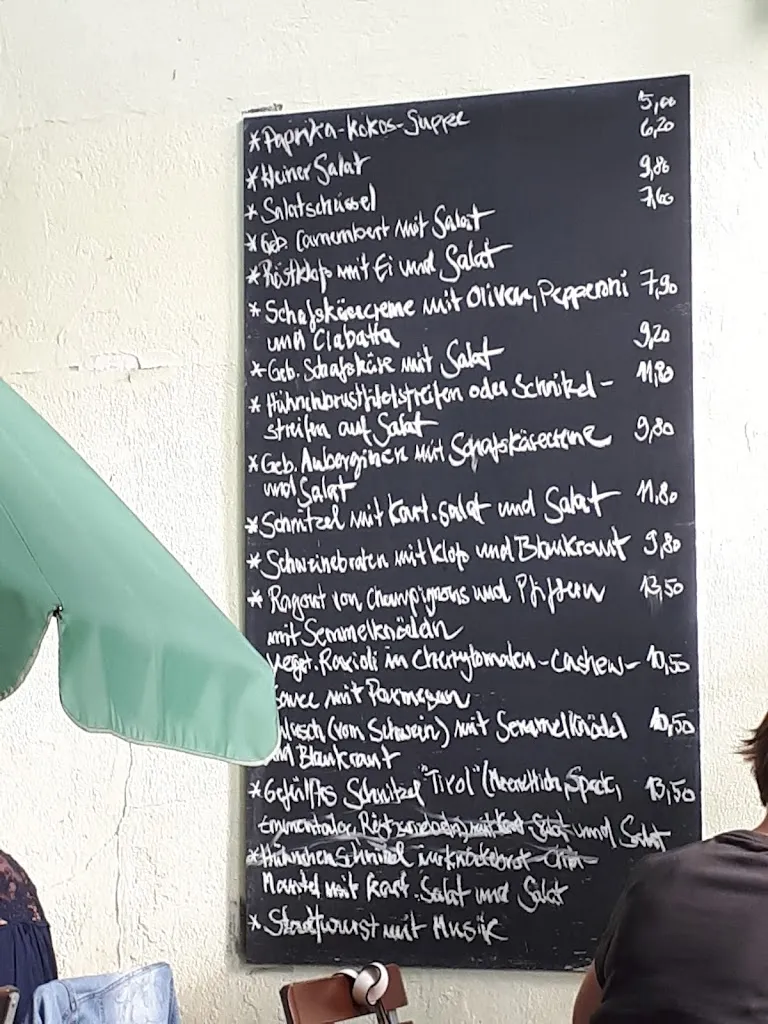 *Paprika-Kokos-Suppe 5,00
*Kleiner Salat 6,20
*Salatschüssel 9,80
*Geb. Camembert mit Salat 7,60
*Röstklops mit Ei und Salat
*Schafskäsecreme mit Oliven, Pepperoni 7,90
und Ciabatta
*Geb. Schafskäse mit Salat 9,20
*Hühnchenbrustfiletstreifen oder Schnitzel- 11,80
streifen auf Salat
*Geb. Auberginen mit Schafskäsecreme 9,80
und Salat
*Schnitzel mit Kart.salat und Salat 11,80
*Schweinebraten mit Kloß und Blaukraut 9,80
*Ragout von Champignons und Pfiffern 13,50
mit Semmelknödeln
Veget. Ravioli in Cherrytomaten-Cashew- 10,50
Sauce mit Parmesan
(vom Schwein) mit Semmelknödel 10,50
und Blaukraut
*Gefülltes Schnitzel "Tirol" (Meerrettich, Speck, 13,50
Emmentaler, Röstzwiebeln) mit Kart. Salat und Salat
*Hühnchen Schnitzel im Knäckebrot-
Mantel mit Kart. Salat und Salat
*Stadtwurst mit Musik